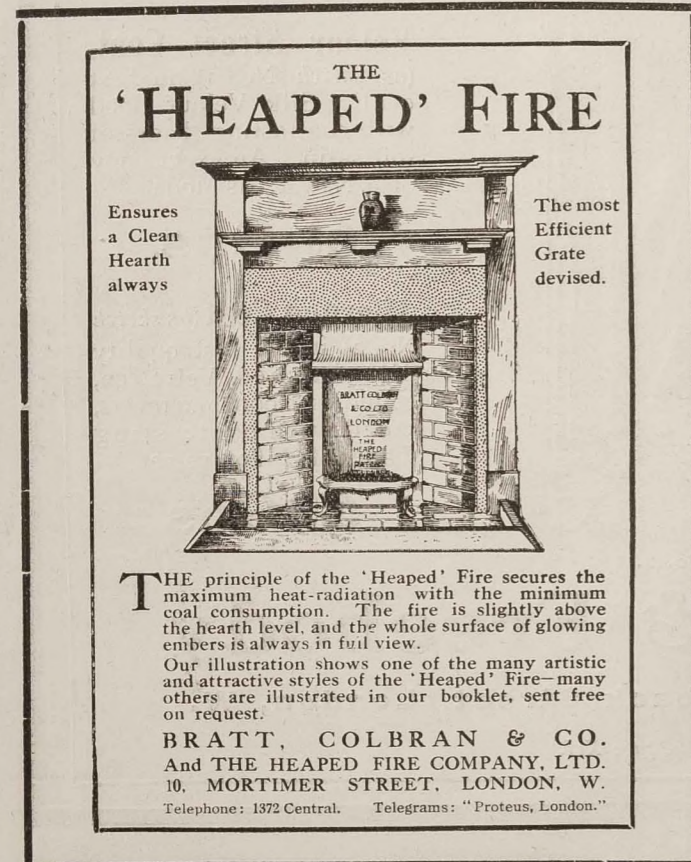 THE
‘HEAPED’ FIRE
Ensures
a Clean
Hearth
always
The most
Efficient
Grate
devised.
BRATT COLBRAN
& CO LTD
LONDON
THE
HEAPED
FIRE
THE principle of the ‘Heaped’ Fire secures the
maximum heat-radiation with the minimum
coal consumption. The fire is slightly above
the hearth level, and the whole surface of glowing
embers is always in full view.
Our illustration shows one of the many artistic
and attractive styles of the ‘Heaped’ Fire—many
others are illustrated in our booklet, sent free
on request.
BRATT, COLBRAN & CO.
And THE HEAPED FIRE COMPANY, LTD.
10, MORTIMER STREET, LONDON, W.
Telephone: 1372 Central. Telegrams: “Proteus, London.”